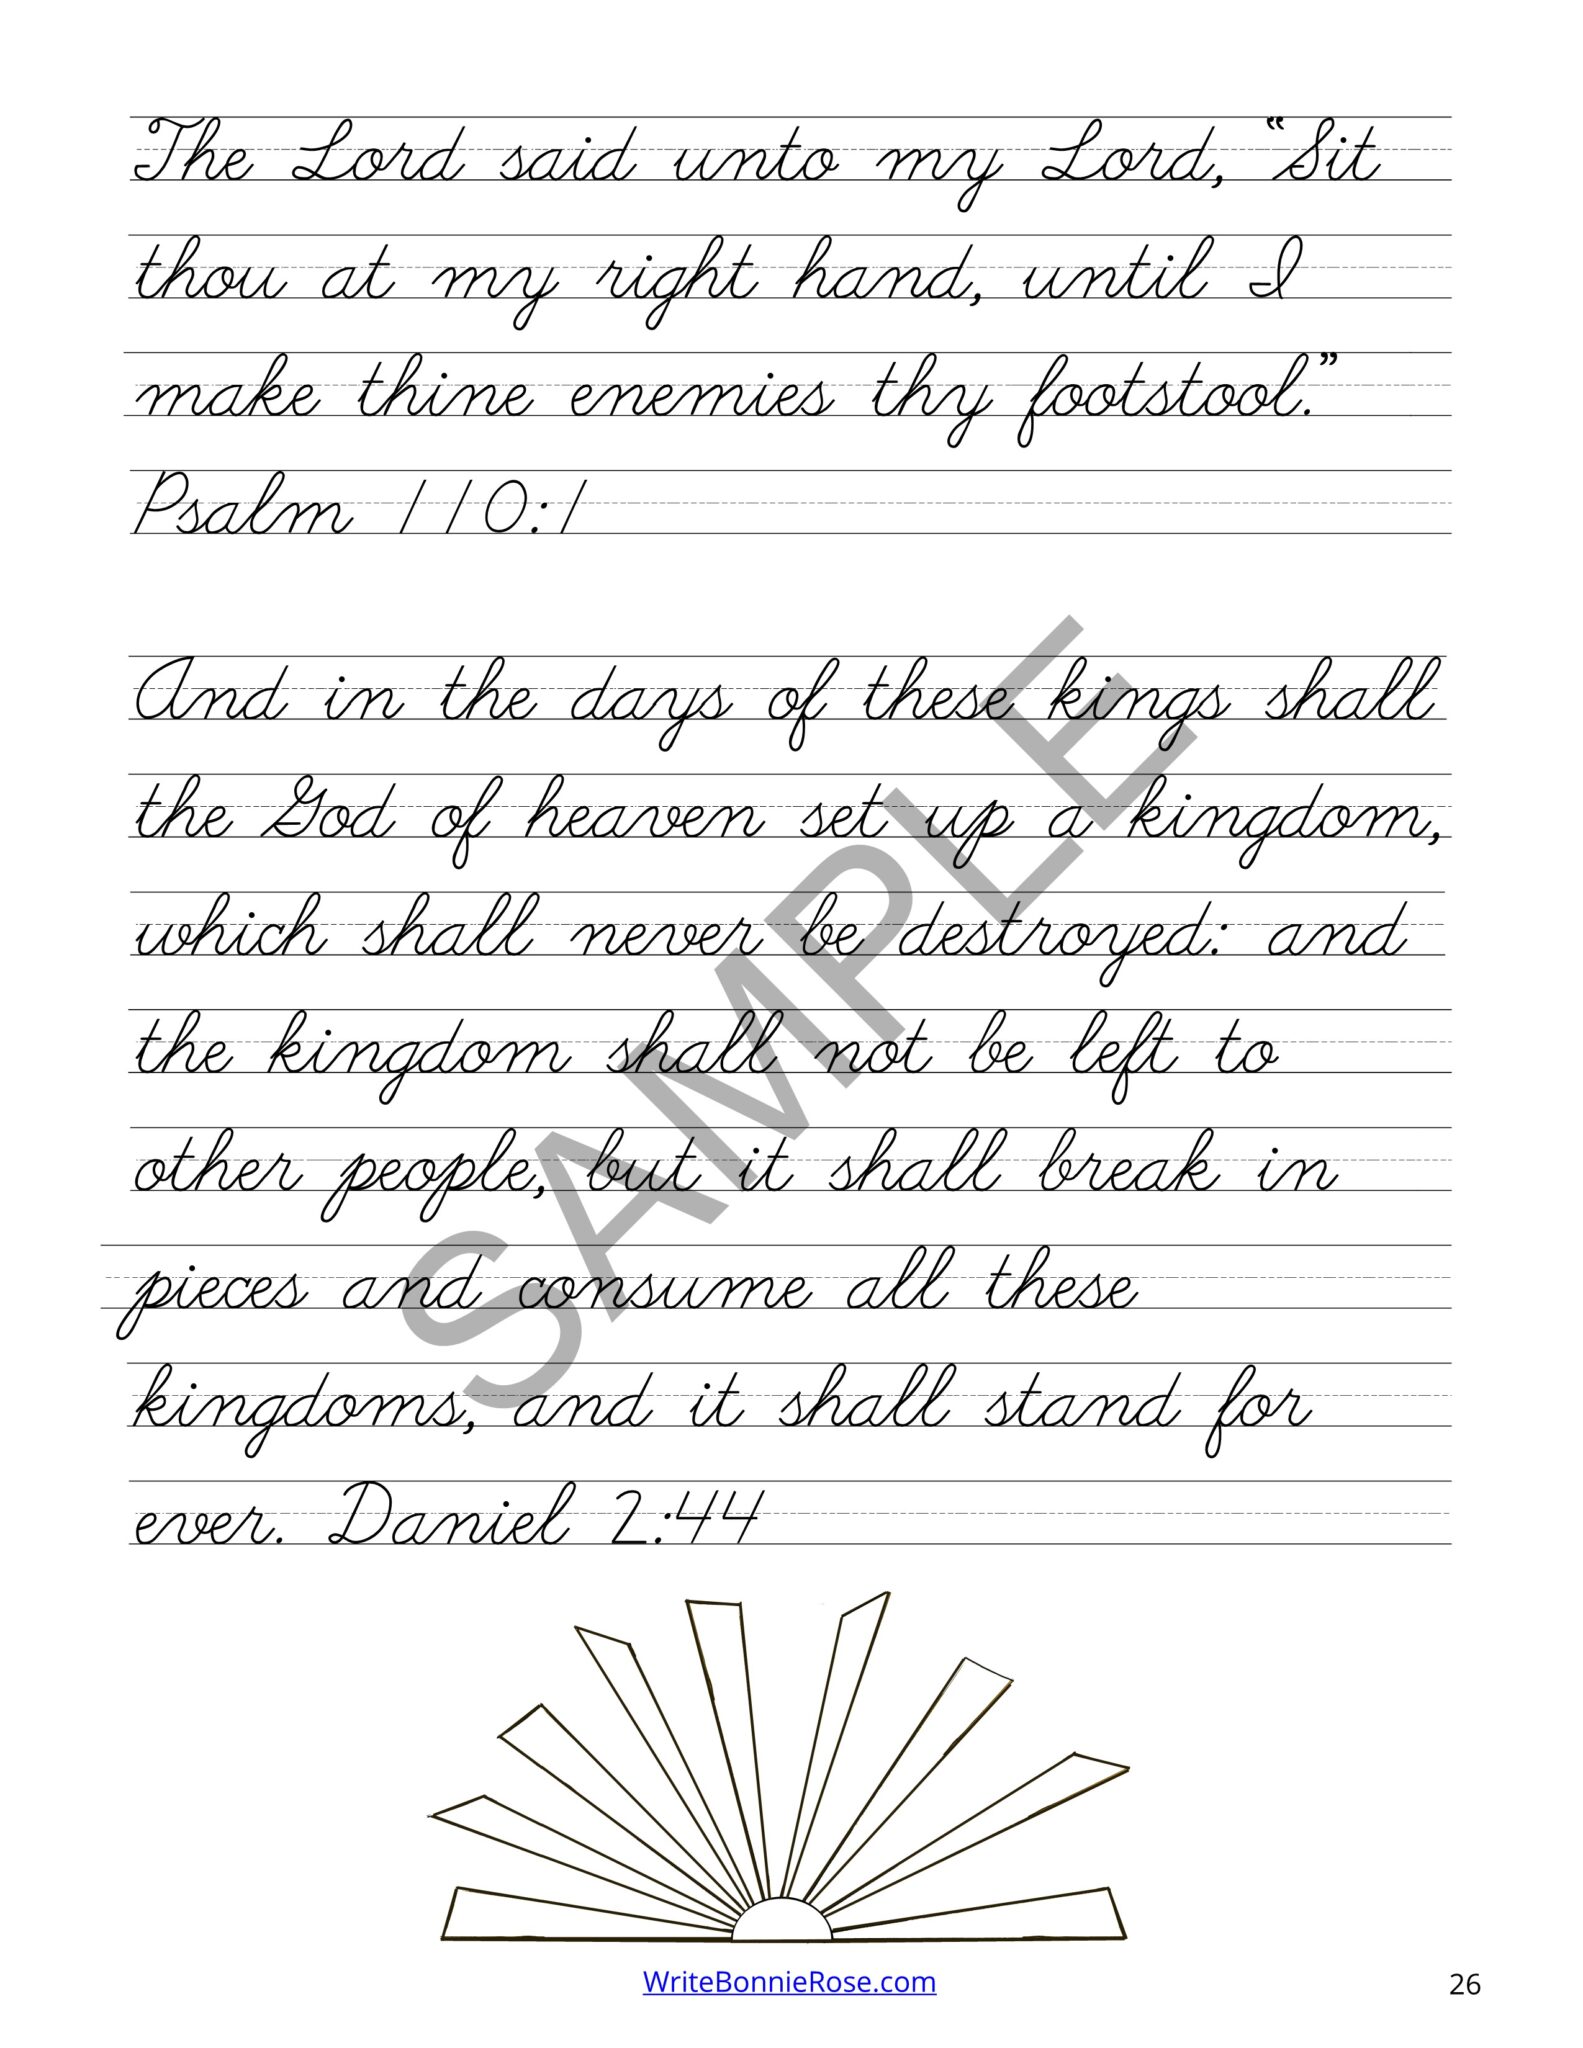 The Lord said unto my Lord, “Sit
thou at my right hand, until I
make thine enemies thy footstool.”
Psalm 110:1
And in the days of these kings shall
the God of heaven set up a kingdom,
which shall never be destroyed: and
the kingdom shall not be left to
other people, but it shall break in
pieces and consume all these
kingdoms, and it shall stand for
ever. Daniel 2:44
SAMPLE
WriteBonnieRose.com
26